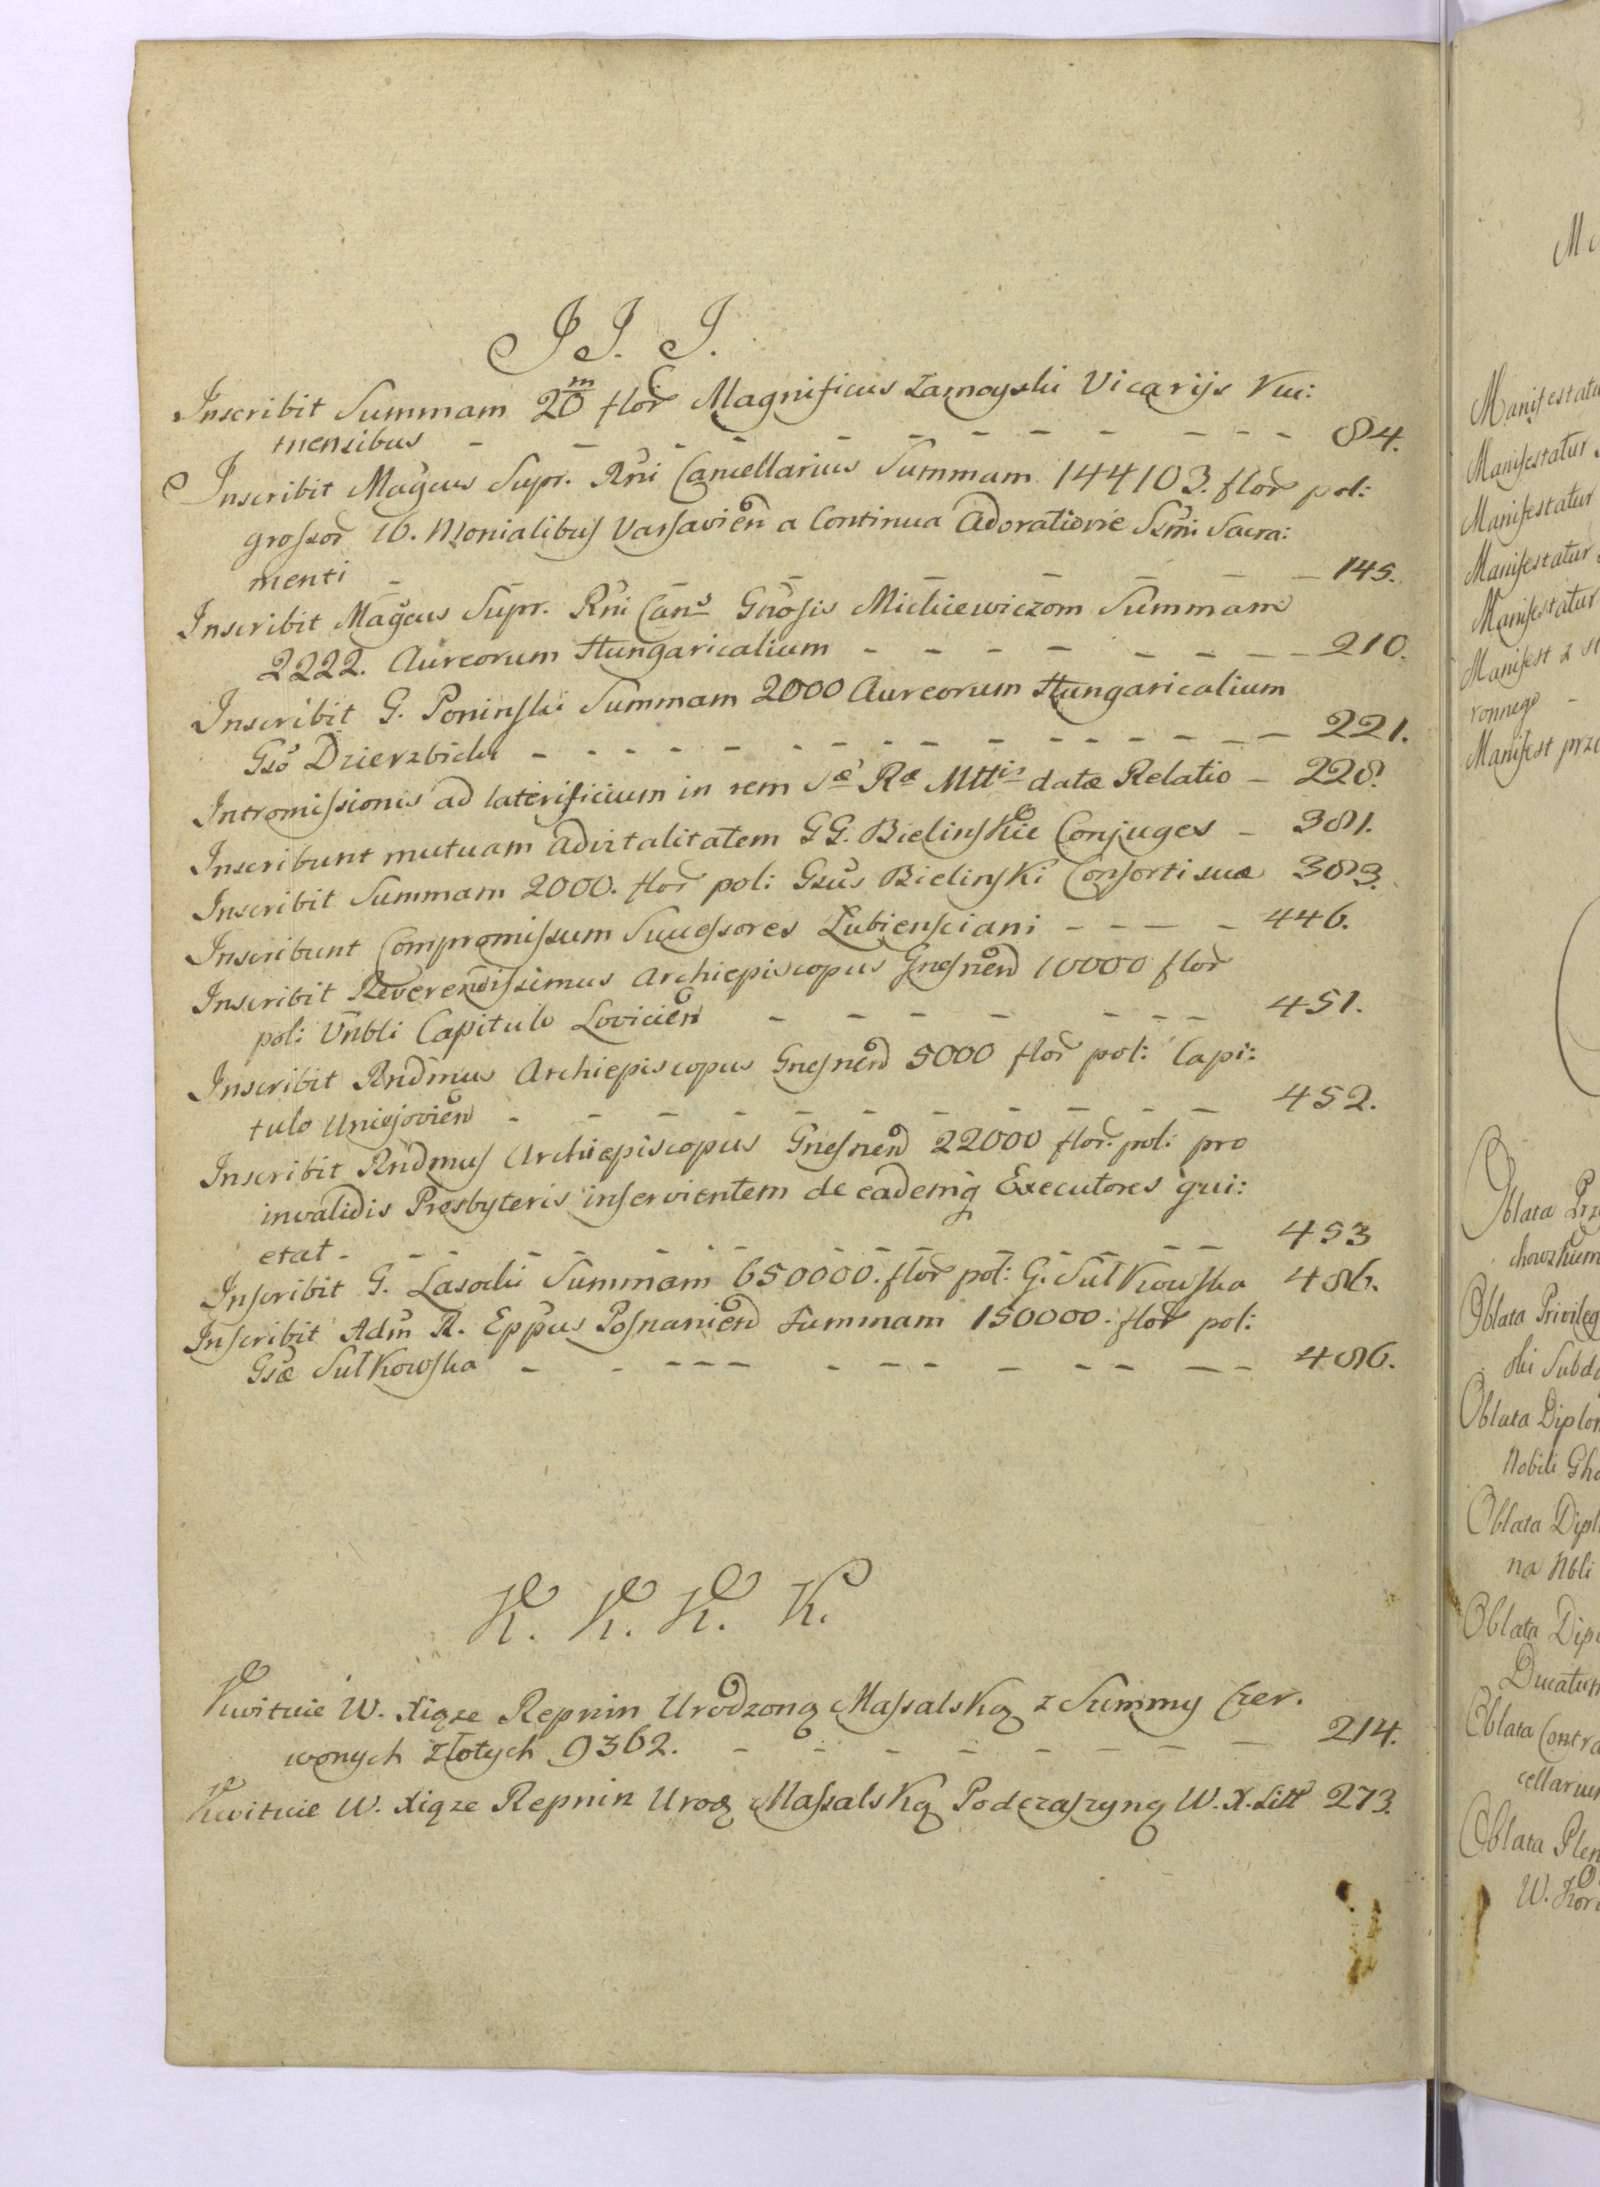 J J. J.
Inscribit Summam 20 m flor Magnificus Zamoyski Vicarijs Kui:
tnensibus - - - - - - - - - - - - 84.
Inscribit Magcus Supr. Rni Cancellarius Summam 144103. flor pol:
grossor 16. Monialibus Varsavien a Continua Adoratione Ssmi Sacra:
menti - - - - - - - - 145.
Inscribit Magcus Supr. Rni Cans Gnosis Mickiewiczom Summam
2222. Aureorum Hungaricalium - - - - - - - - 210.
Inscribit G. Poninski Summam 2000 Aureorum Hungaricalium
Gso Dzierzbicki - - - - - - - - - - - - - - - 221.
Intromissionis ad laterificium in rem Sæ Ræ Mttis datæ Relatio - 228.
Inscribunt mutuam advitalitatem GG. Bielinskie Conjuges - 381.
Inscribit Summam 2000. flor pol: Gsus Bielinski Consorti suæ 383.
Inscribunt Compromissum Successores Łubiensciani - - - - - 446.
Inscribit Reverendissimus Archiepiscopus Gnesnen 10000 flor
pol: Vnbli Capitulo Lovicien - - - - - - - 451.
Inscribit Rndmus Archiepiscopus Gnesnen 5000 flor pol: Capi:
tulo Uniejovien - - - - - - - - - - - 452.
Inscribit Rndmus Archiepiscopus Gnesnen 22000 flor. pol: pro
invalidis Presbyteris inservientem de eademq Executores qui:
etat - - - - - - - - - - - - - 453
Inscribit G. Lasocki Summam 650000. flor pol: G. Sułkowska 486.
Inscribit Adm R. Eppus Posnanien Summam 150000. flor pol:
Gsæ Sułkowska - - - - - - - - - - - - - 486.
K. K. K. K.
Kwituie W. Xiąze Repnin Urodzoną Massalską z Summy Czer.
wonych Złotych 9362. - - - - - - - - 214.
Kwituie W. Xiąze Repnin Urog Massalską Podczaszyną W. X. Litt 273.
Manifestatur
Manifestatur
Manifestatur
Manifest
Manifest
Oblata
Oblata
Oblata
Oblata
Oblata
Oblata
Oblata